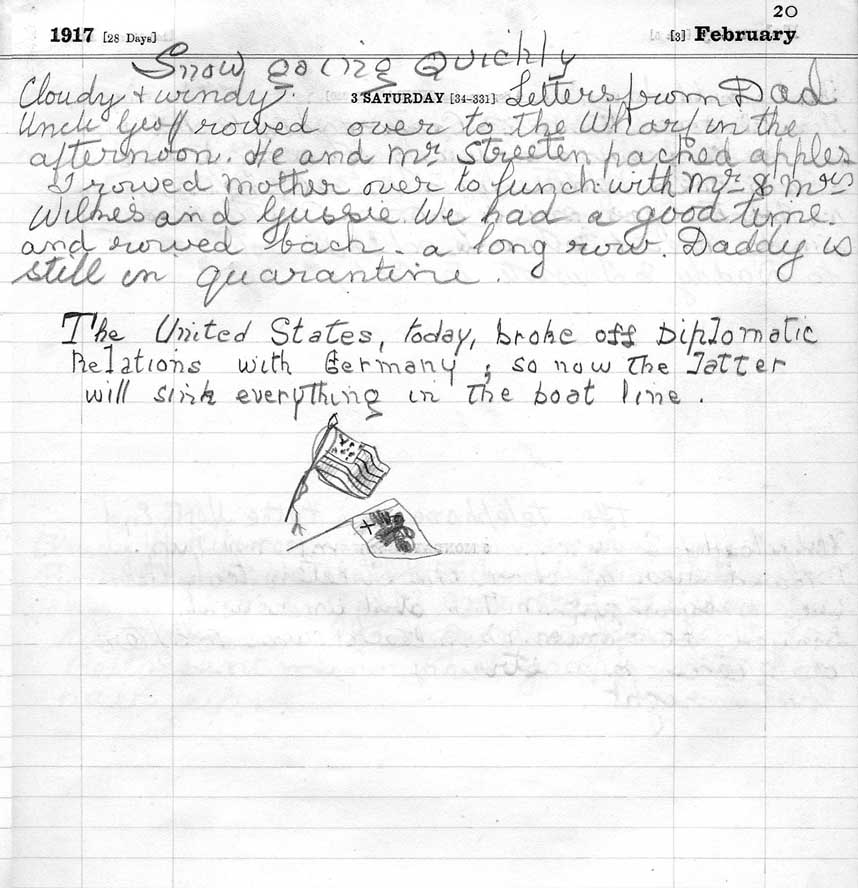 20
1917 [28 Days] [3] February
Snow going Quickly
Cloudy + windy. 3 SATURDAY [34-331] Letters from Dad
Uncle Geoff rowed over to the Wharf in the
afternoon. He and Mr. Streeten packed apples
I rowed mother over to lunch with Mr. & Mrs
Wilkes and Gussie. We had a good time.
and rowed back - a long row. Daddy is
still in quarantine.
The United States, today, broke off Diplomatic
Relations with Germany; so now the latter
will sink everything in the boat line.